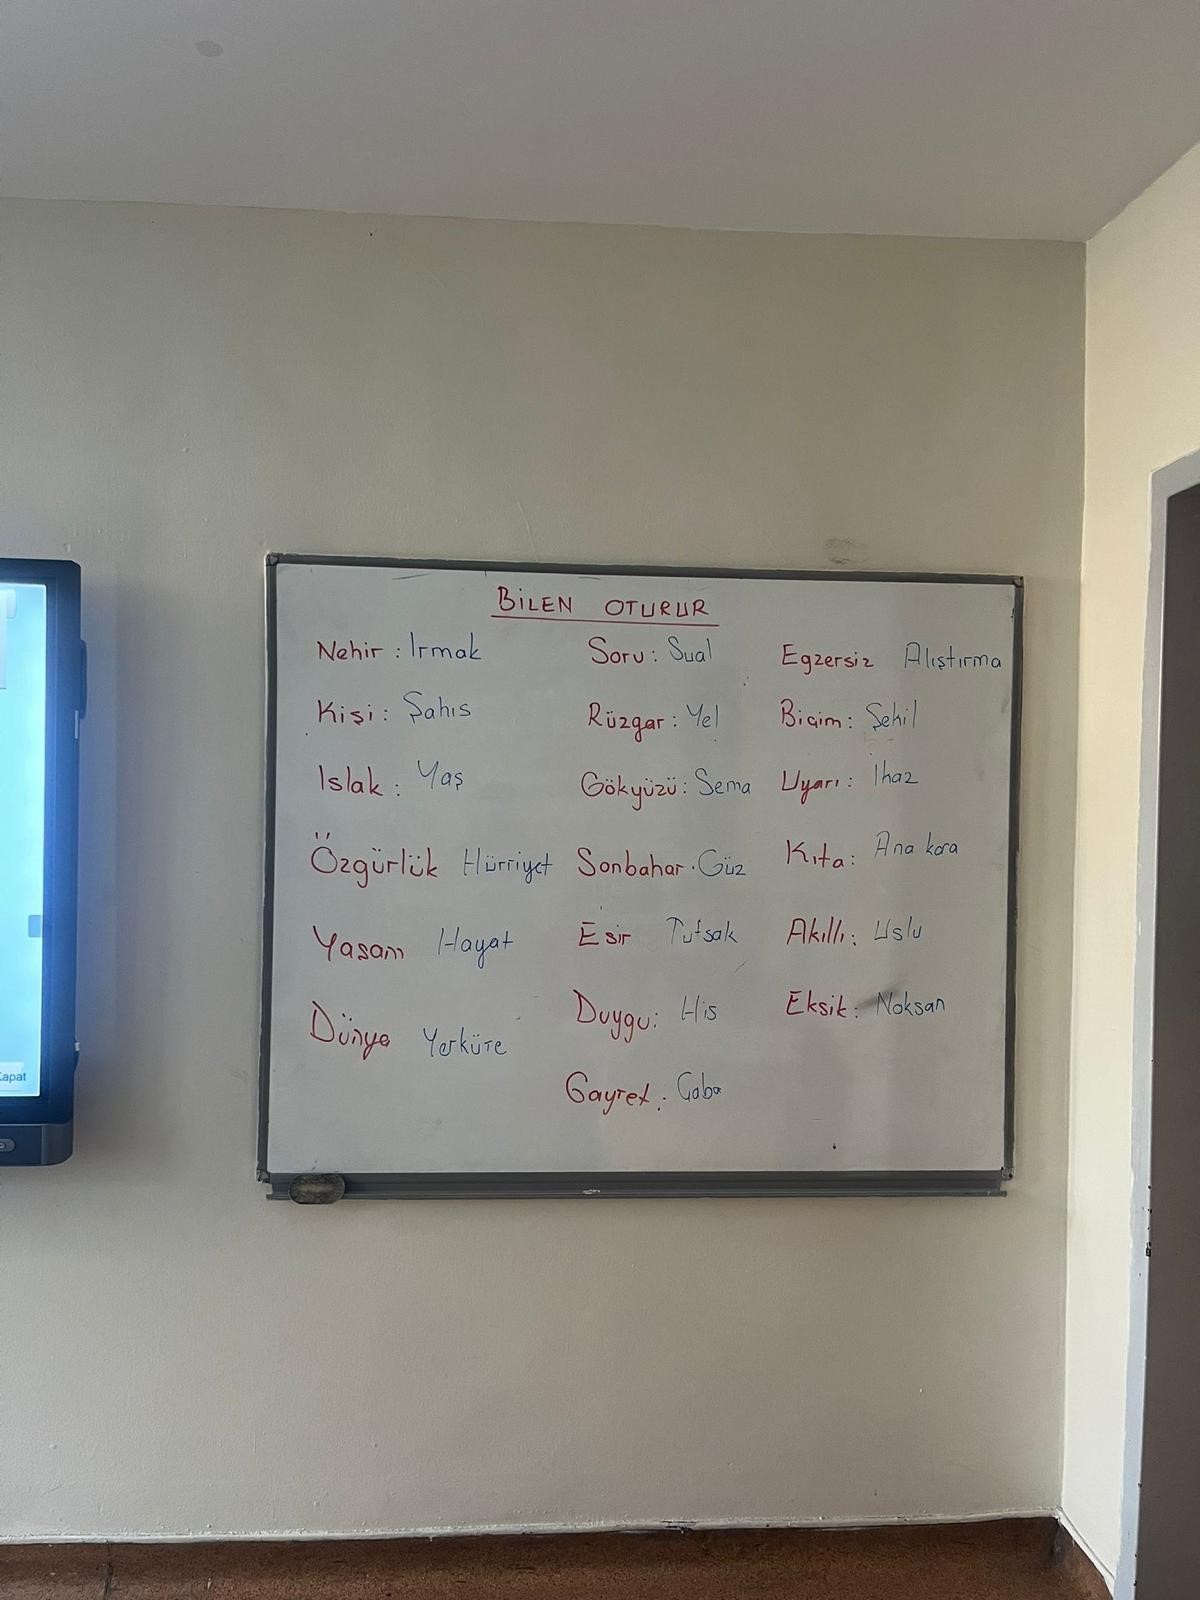 BİLEN OTURUR
Nehir : Irmak
Kişi : Şahıs
Islak : Yaş
Özgürlük Hürriyet
Yasam Hayat
Dünya Yerküre
Soru : Sual
Rüzgar : Yel
Gökyüzü : Sema
Sonbahar . Güz
Esir Tutsak
Duygu : His
Gayret : Çaba
Egzersiz Alıştırma
Biçim : Şekil
Uyarı : İhaz
Kıta : Ana kara
Akıllı : Uslu
Eksik : Noksan
Kapat